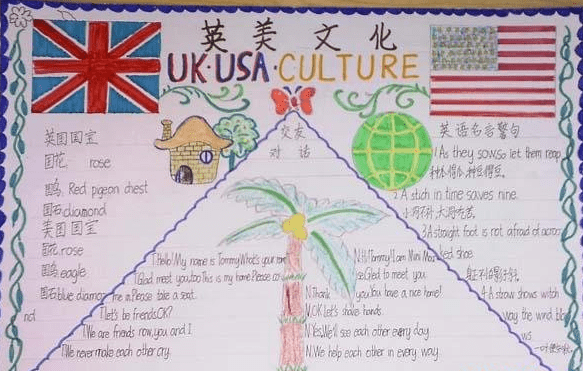 英美文化
UK·USA·CULTURE
英国国宝
国花 rose
国鸟 Red pigeon chest
国石 diamond
美国国宝
国花 rose
国鸟 eagle
国石 blue diamond
交友
对话
T Hello! My name is Tommy What's your
T Glad meet you, too This is my home. Please
me in. Please take a seat.
T Let's be friends, OK?
T We are friends now, you and I
T We never make each other cry.
N Hi! Tommy I am Mini
Glad to meet you
N Thank you You have a nice home!
N OK Let's shake hands
N Yes, We'll see each other every day.
N. We help each other in every way.
英语名言警句
1 As they sow, so let them reap
种瓜得瓜,种豆得豆。
2 A stich in time saves nine
小洞不补,大洞吃苦。
3 A straight foot is not afraid of a crooked shoe
4 A straw shows witch
way the wind blows